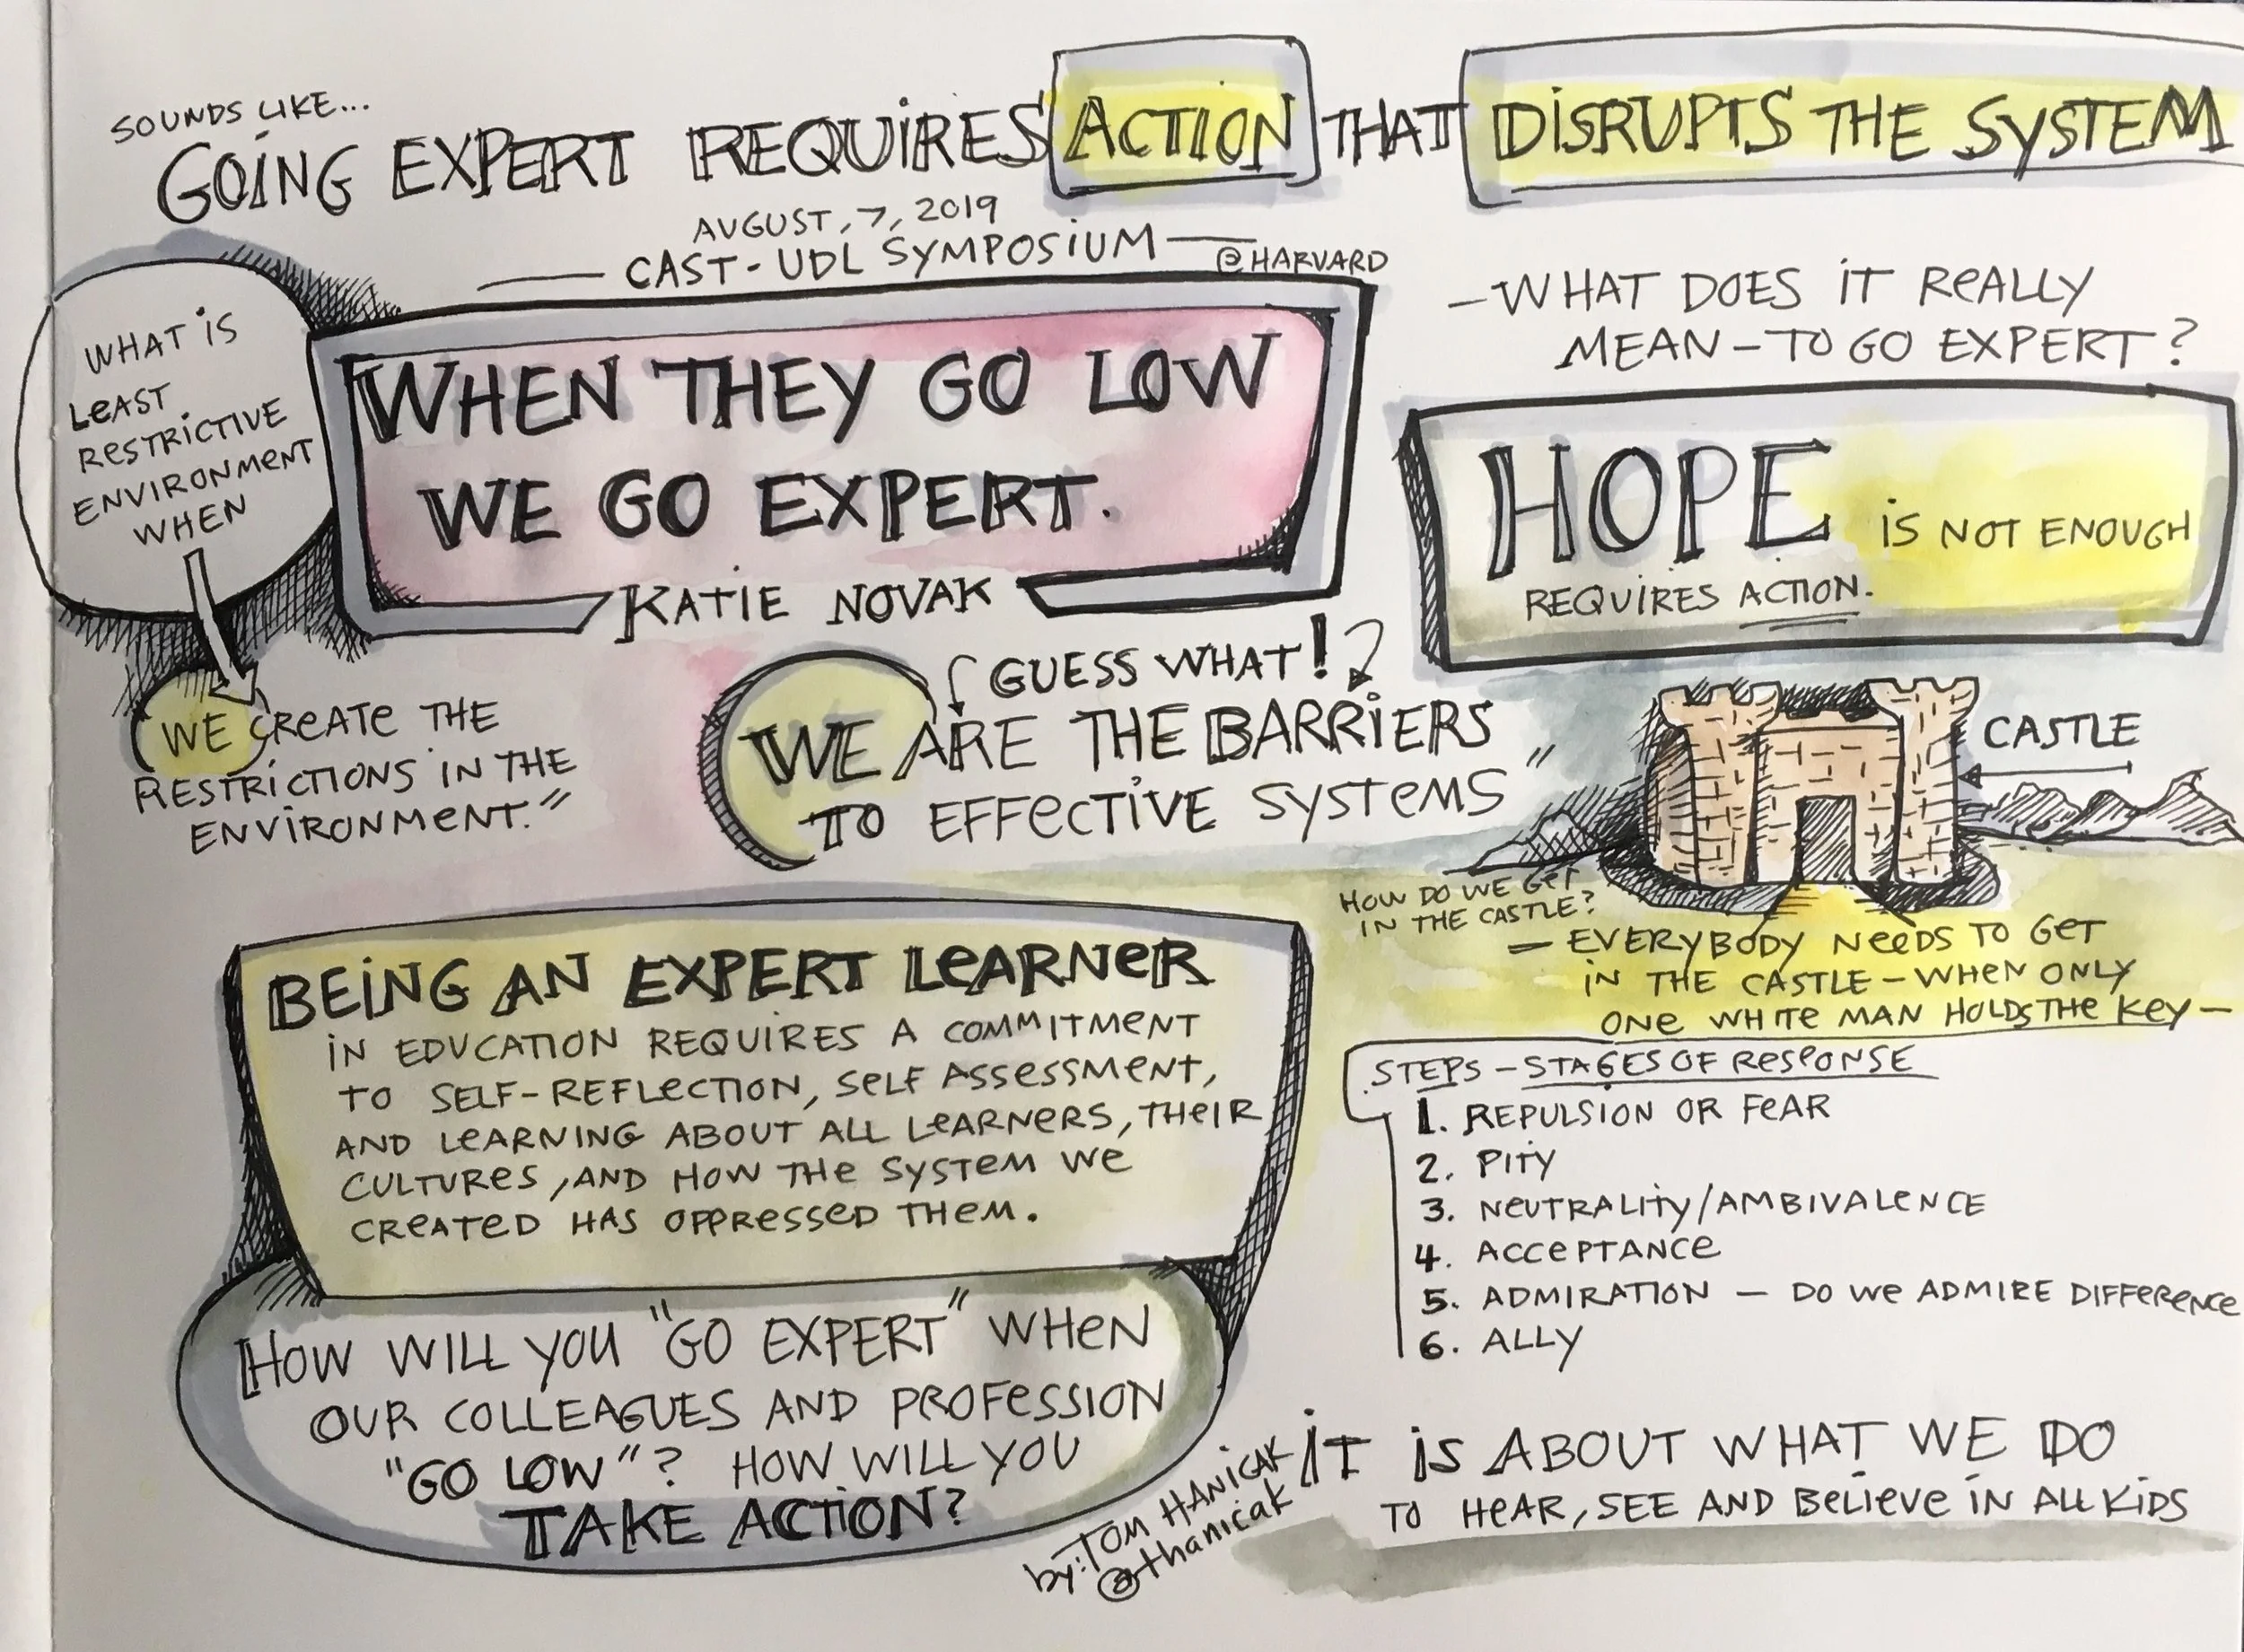 SOUNDS LIKE...
GOING EXPERT REQUIRES ACTION THAT DISRUPTS THE SYSTEM
AUGUST, 7, 2019
CAST - UDL SYMPOSIUM
@HARVARD
WHAT IS
LEAST
RESTRICTIVE
ENVIRONMENT
WHEN
WE CREATE THE
RESTRICTIONS IN THE
ENVIRONMENT."
WHEN THEY GO LOW
WE GO EXPERT.
KATIE NOVAK
- WHAT DOES IT REALLY
MEAN - TO GO EXPERT?
HOPE IS NOT ENOUGH
REQUIRES ACTION.
GUESS WHAT!
WE ARE THE BARRIERS
TO EFFECTIVE SYSTEMS"
CASTLE
HOW DO WE GET
IN THE CASTLE?
- EVERYBODY NEEDS TO GET
IN THE CASTLE - WHEN ONLY
ONE WHITE MAN HOLDS THE KEY -
BEING AN EXPERT LEARNER
IN EDUCATION REQUIRES A COMMITMENT
TO SELF-REFLECTION, SELF ASSESSMENT,
AND LEARNING ABOUT ALL LEARNERS, THEIR
CULTURES, AND HOW THE SYSTEM WE
CREATED HAS OPPRESSED THEM.
HOW WILL YOU "GO EXPERT" WHEN
OUR COLLEAGUES AND PROFESSION
"GO LOW"? HOW WILL YOU
TAKE ACTION?
STEPS - STAGES OF RESPONSE
1. REPULSION OR FEAR
2. PITY
3. NEUTRALITY/AMBIVALENCE
4. ACCEPTANCE
5. ADMIRATION - DO WE ADMIRE DIFFERENCE
6. ALLY
IT IS ABOUT WHAT WE DO
TO HEAR, SEE AND BELIEVE IN ALL KIDS
by: TOM HANICAK
@thanicak